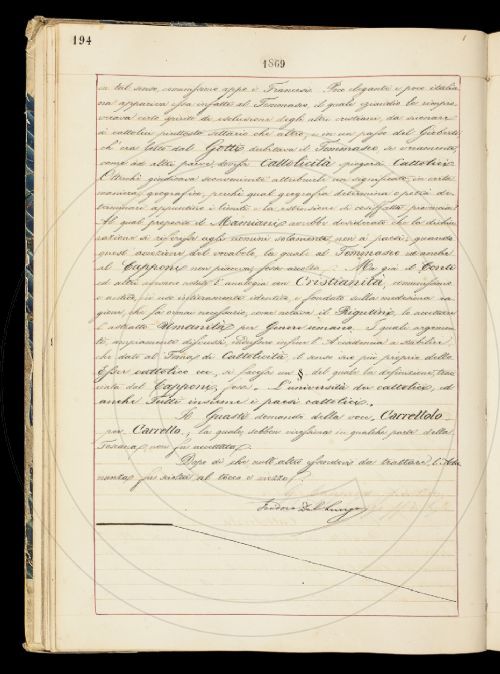 194
1869
in tal senso, comunissimo appo i Francesi. Poco elegante e poco italia
na appariva essa infatti al Tommaseo, il quale eziandio la rimpro
verava certo spirito di esclusione degli altri cristiani, da suonare
ai cattolici piuttosto settario che altro, e in un passo del Gioberti
ch'era letto dal Gotti dubitava il Tommaseo se veramente,
come ad altri parve, dovesse Cattolicità spiegarsi Cattolici.
Oltreché giudicava sconveniente attribuirle un significato, in certa
maniera, geografico, perché qual geografia determina o potrà de
terminare appuntino i limiti e la estensione di cosiffatta provincia?
Al qual proposito il Mamiani avrebbe desiderato che la dichia
razione si riferisse agli uomini solamente, non ai paesi; quando
questa accezione del vocabolo, la quale al Tommaseo ed anche
al Capponi non piaceva, fosse accolta. Ma già il Conti
ed altri avevano notato l'analogia con Cristianità, comunissimo
e antico, se non interamente identico, e fondato sulla medesima ra
gione, che fa ormai necessario, come notava il Rigutini, lo accettare
l'astratto Umanità per Genere umano. I quali argomen
ti, ampiamente discussi, indussero infine l'Accademia a stabilire
che dato al Tema di Cattolicità il senso suo più proprio dello
Esser cattolico ec., si facesse un § del quale la definizione, tro
vata dal Capponi, fosse: L'università dei cattolici, ed
anche Tutti insieme i paesi cattolici.
Il Guasti domandò della voce Carrettolo
per Carretto; la quale, sebben vivissima in qualche parte della
Toscana, non fu accettata.
Dopo di che null'altro essendovi da trattare, l'Adu
nanza fu sciolta al tocco e mezzo.
Isidoro Del Lungo